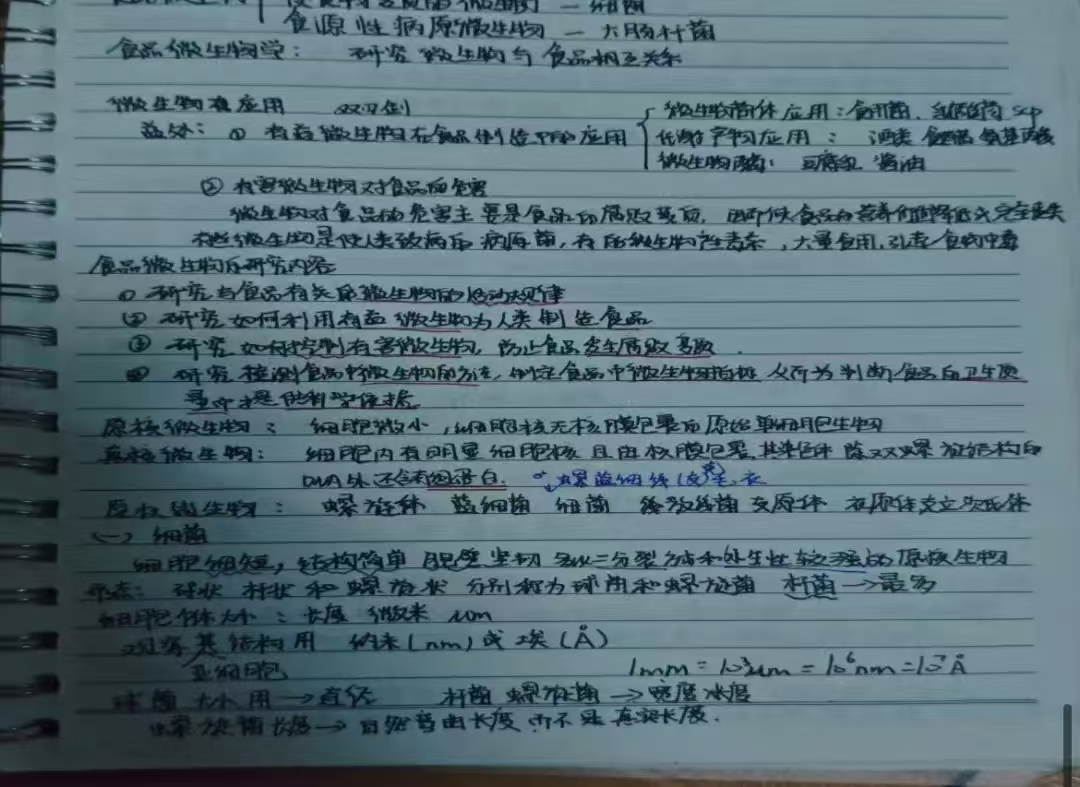 使食物变质的微生物 — 细菌
食源性病原微生物 — 大肠杆菌
食品微生物学： 研究微生物与食品相互关系
微生物应用 双刃剑
益处：① 有益微生物在食品制造中的应用
微生物菌体应用：食用菌、乳酸菌 scp
代谢产物应用： 酒类 食醋 氨基酸
微生物酶： 豆腐乳 酱油
② 有害微生物对食品的危害
微生物对食品的危害主要是食品的腐败变质，因而使食品的营养价值降低或完全丧失
有些微生物是使人类致病的病原菌，有的微生物产生毒素，大量食用，引起食物中毒
食品微生物的研究内容
① 研究与食品有关的微生物的活动规律
② 研究如何利用有益微生物为人类制造食品
③ 研究如何控制有害微生物，防止食品发生腐败变质.
④ 研究检测食品中微生物的方法，制定食品中微生物指标 从而为判断食品的卫生质
量而提供科学依据
原核微生物： 细胞微小，细胞核无核膜包裹的原始单细胞生物
真核微生物： 细胞内有明显细胞核 且由核膜包裹，其染色体除了双螺旋结构的
DNA外还含有组蛋白.
螺蓝细线(放)支、衣
原核微生物： 螺旋体 蓝细菌 细菌 放线菌 支原体 衣原体 立克次氏体
(一) 细菌
细胞细短，结构简单 胞壁坚韧 多以二分裂 方式和水生性较强的原核生物
形态：球状 杆状 和螺旋状 分别称为球菌和螺旋菌 杆菌 → 最多
细胞个体大小： 长度 微米 μm
观察其结构用 纳米(nm)或埃(Å)
亚细胞
1mm = 10³μm = 10⁶nm = 10⁷Å
球菌大小用 → 直径 杆菌 螺旋菌 → 宽度×长度
螺旋菌长度 → 自然弯曲长度，而不是真实长度.